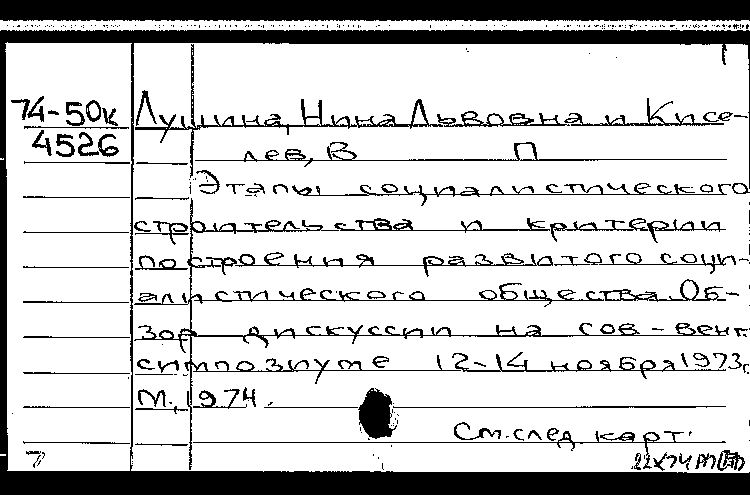 74-50к Лушина, Нина Львовна и Кисе-
4526 лев, В П
Этапы социалистического
строительства и критерии
построения развитого соци-
алистического общества. Об-
зор дискуссии на сов-венг
симпозиуме 12-14 ноября 1973г.
М., 1974.
См. след. карт.